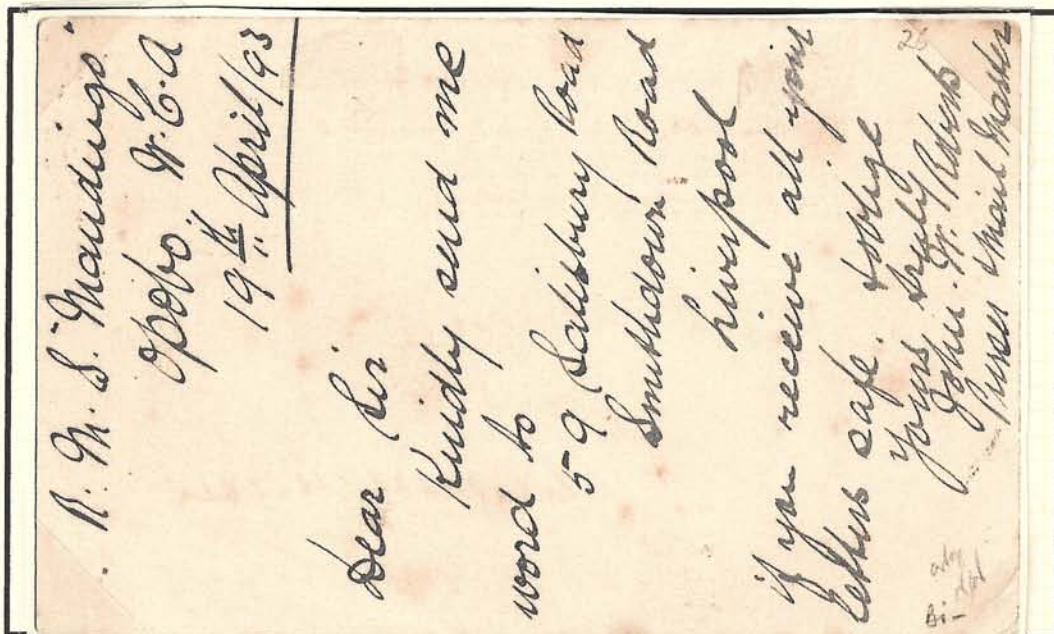 R. M. S. "Mandingo"
Opobo W. C. A
19th April/93
Dear Sir
Kindly send me
word to
59 Salisbury Road
Smithdown Road
Liverpool
if you receive all your
letters safe. & oblige
Yours truly
John. W. Roberts
Purser & Mail Master
26
Bi-